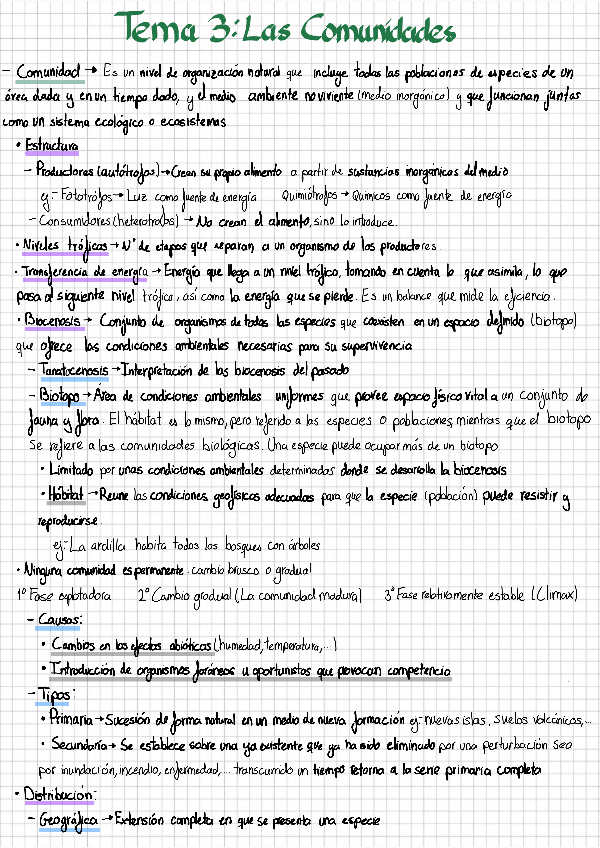 Tema 3: Las Comunidades
- Comunidad → Es un nivel de organización natural que incluye todas las poblaciones de especies de un
área dada y en un tiempo dado, y el medio ambiente no viviente (medio inorgánico) y que funcionan juntas
como un sistema ecológico o ecosistemas
• Estructura
- Productores (autótrofos) → Crean su propio alimento a partir de sustancias inorgánicas del medio
ej:- Fototrófos → Luz como fuente de energía Quimiótrofos → Químicos como fuente de energía
- Consumidores (heterotrofos) → No crean el alimento, sino lo introduce.
• Niveles tróficos → Nº de etapas que separan a un organismo de los productores.
• Transferencia de energía → Energía que llega a un nivel trófico, tomando en cuenta lo que asimila, lo que
pasa al siguiente nivel trófico, así como la energía que se pierde. Es un balance que mide la eficiencia.
• Biocenosis → Conjunto de organismos de todas las especies que coexisten en un espacio definido (biotopo)
que ofrece las condiciones ambientales necesarias para su supervivencia
- Tanatocenosis → Interpretación de las biocenosis del pasado
- Biotopo → Área de condiciones ambientales uniformes que provee espacio físico vital a un conjunto de
fauna y flora. El hábitat es lo mismo, pero referido a las especies o poblaciones, mientras que el biotopo
se refiere a las comunidades biológicas. Una especie puede ocupar más de un biotopo
• Limitado por unas condiciones ambientales determinadas donde se desarrolla la biocenosis
• Hábitat → Reune las condiciones geofísicas adecuadas para que la especie (población) puede resistir y
reproducirse.
ej:- La ardilla habita todos los bosques con árboles
• Ninguna comunidad es permanente: cambio brusco o gradual
1º Fase explotadora 2º Cambio gradual (La comunidad madura) 3º Fase relativamente estable (Climax)
- Causas:
• Cambios en los efectos abióticos (humedad, temperatura,...)
• Introducción de organismos foráneos u oportunistas que provocan competencia
- Tipos:
• Primaria → Sucesión de forma natural en un medio de nueva formación ej:- nuevas islas, suelos volcánicos,...
• Secundaria → Se establece sobre una ya existente que ya ha sido eliminada por una perturbación sea
por inundación, incendio, enfermedad,... transcurrido un tiempo retorna a la serie primaria completa
• Distribución:
- Geográfica → Extensión completa en que se presenta una especie